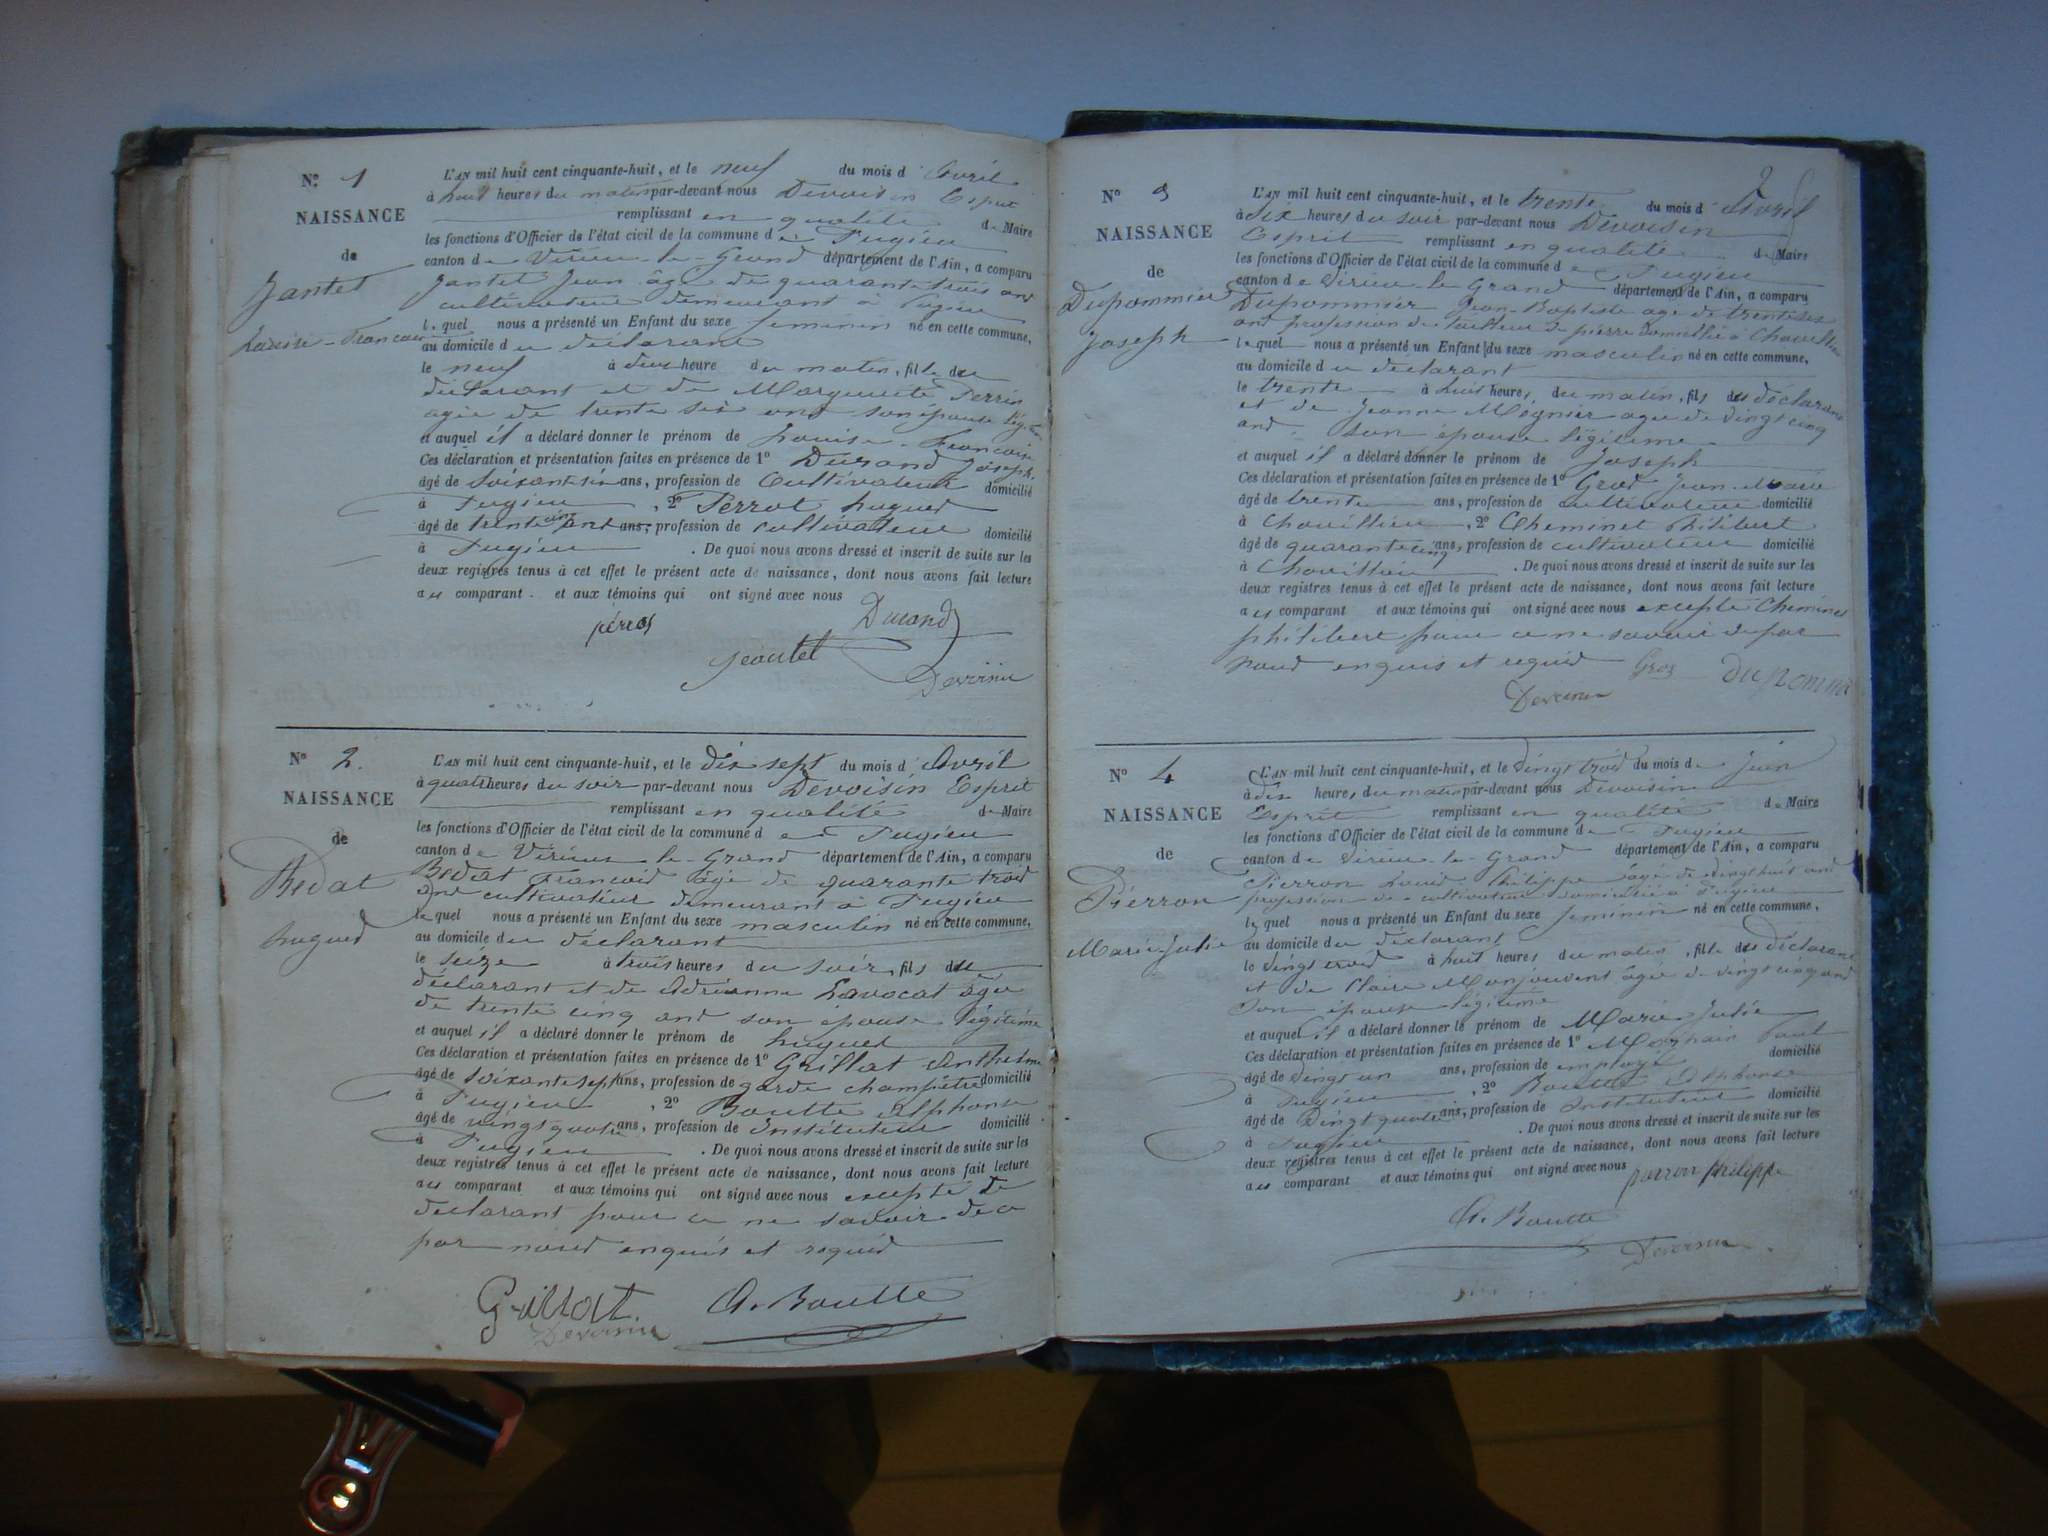 N.º 1
NAISSANCE
de
Jantet
Louise-Francoise
L'AN mil huit cent cinquante-huit, et le neuf du mois d' Avril
à huit heures du matin par-devant nous Devoisin Esprit
remplissant en qualité de Maire
les fonctions d'Officier de l'état civil de la commune de Pugieu
canton de Virieu-le-Grand département de l'Ain, a comparu
Jantet Jean âgé de quarante trois ans
cultivateur demeurant à Pugieu
lequel nous a présenté un Enfant du sexe feminin né en cette commune,
au domicile du déclarant
le neuf à deux heure du matin, fille du
déclarant et de Marguerite Perrin
agée de trente six ans son épouse légitime
et auquel il a déclaré donner le prénom de Louise-Francoise
Ces déclaration et présentation faites en présence de 1º Durand Joseph,
âgé de soixante six ans, profession de Cultivateur domicilié
à Pugieu, 2º Perrot hugues
âgé de trente cinq ans ans, profession de cultivateur domicilié
à Pugieu. De quoi nous avons dressé et inscrit de suite sur les
deux registres tenus à cet effet le présent acte de naissance, dont nous avons fait lecture
aux comparant et aux témoins qui ont signé avec nous
Durand
Devoisin
Nº 2.
NAISSANCE
de
Bedat
hugues
L'AN mil huit cent cinquante-huit, et le dix sept du mois d' Avril
à quatre heures du soir par-devant nous Devoisin Esprit
remplissant en qualité de Maire
les fonctions d'Officier de l'état civil de la commune de Pugieu
canton de Virieu-le-Grand département de l'Ain, a comparu
Bedat Francois âgé de quarante trois
ans cultivateur demeurant à Pugieu
lequel nous a présenté un Enfant du sexe masculin né en cette commune,
au domicile du déclarant
le seize à trois heures du soir, fils du
déclarant et de Adrienne Lavocat âgée
de trente cinq ans son épouse légitime
et auquel il a déclaré donner le prénom de hugues
Ces déclaration et présentation faites en présence de 1º Grillat Anthelme
âgé de soixante sept ans, profession de garde champêtre domicilié
à Pugieu, 2º Boutte Alphonse
âgé de vingt quatre ans, profession de Instituteur domicilié
à Pugieu. De quoi nous avons dressé et inscrit de suite sur les
deux registres tenus à cet effet le présent acte de naissance, dont nous avons fait lecture
aux comparant et aux témoins qui ont signé avec nous excepté le
déclarant pour ce ne savoir de ce
par nous enquis et requis
Grillat. A. Boutte
Devoisin
Nº 3
NAISSANCE
de
Dupommier
Joseph
L'AN mil huit cent cinquante-huit, et le trente du mois d' Avril
à six heures du soir par-devant nous Devoisin
Esprit remplissant en qualité de Maire
les fonctions d'Officier de l'état civil de la commune de Pugieu
canton de Virieu-le-Grand département de l'Ain, a comparu
Dupommier Jean-Baptiste age de trente six
ans profession de tailleur de pierre domicilié à Chouillieu
lequel nous a présenté un Enfant du sexe masculin né en cette commune,
au domicile du déclarant
le trente à huit heures, du matin, fils du déclarant
et de Jeanne Mognier agee de vingt cinq
ans son épouse légitime
et auquel il a déclaré donner le prénom de Joseph
Ces déclaration et présentation faites en présence de 1º Gros Jean-Marie
âgé de trente ans, profession de cultivateur domicilié
à Chouillieu, 2º Cheminet philibert
âgé de quarante cinq ans, profession de cultivateur domicilié
à Chouillieu. De quoi nous avons dressé et inscrit de suite sur les
deux registres tenus à cet effet le présent acte de naissance, dont nous avons fait lecture
aux comparant et aux témoins qui ont signé avec nous excepté Cheminet
philibert pour ce ne savoir de par
nous enquis et requis Gros dupommie
Devoisin
Nº 4
NAISSANCE
de
Pierron
Marie-Julie
L'AN mil huit cent cinquante-huit, et le vingt trois du mois de juin
à dix heures du matin par-devant nous Devoisin
Esprit remplissant en qualité de Maire
les fonctions d'Officier de l'état civil de la commune de Pugieu
canton de Virieu-le-Grand département de l'Ain, a comparu
Pierron Louis Philippe âgé de vingt huit ans
profession de cultivateur domicilié à Pugieu
lequel nous a présenté un Enfant du sexe feminin né en cette commune,
au domicile du déclarant
le vingt trois à huit heures du matin, fille du déclarant
et de Claire Monjouvent âgée de vingt cinq ans
son épouse légitime
et auquel il a déclaré donner le prénom de Marie Julie
Ces déclaration et présentation faites en présence de 1º Paul
âgé de vingt un ans, profession de employé domicilié
à Pugieu, 2º Boutte Alphonse
âgé de vingt quatre ans, profession de Instituteur domicilié
à Pugieu. De quoi nous avons dressé et inscrit de suite sur les
deux registres tenus à cet effet le présent acte de naissance, dont nous avons fait lecture
aux comparant et aux témoins qui ont signé avec nous pierron philippe
A. Boutte
Devoisin